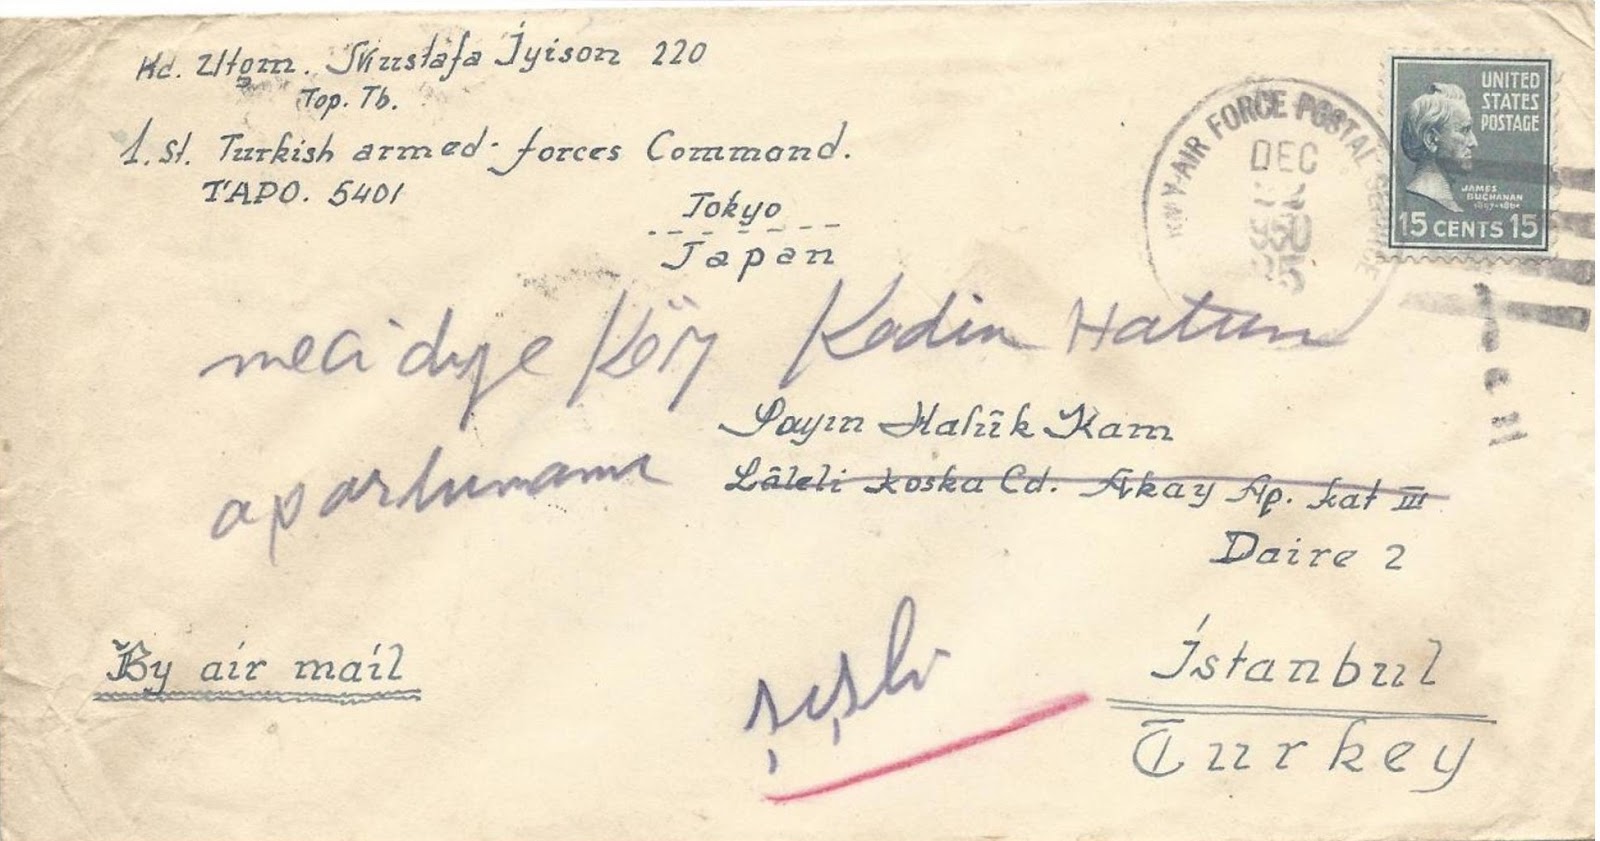 Kd. Üstğm. Mustafa İyison 220
Top. Tb.
1.st. Turkish armed-forces Command.
TAPO. 5401
Tokyo
Japan
UNITED
STATES
POSTAGE
JAMES
BUCHANAN
15 CENTS 15
Y-AIR FORCE POSTAL SERVICE
DEC
mecidiye Köy Kadin Hatun
apartumanı
Sayın Halûk Kam
Lâleli koska Cd. Akay Ap. kat III
Daire 2
By air mail
şişli
İstanbul
Turkey